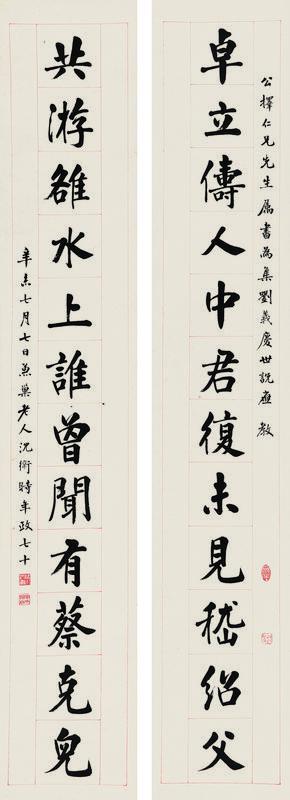 公擇仁兄先生属書為集劉義慶世說應教
卓立儔人中君復未見嵇紹父
共游雒水上誰曾聞有蔡克兒
辛未七月七日兼巢老人沈衛時年政七十